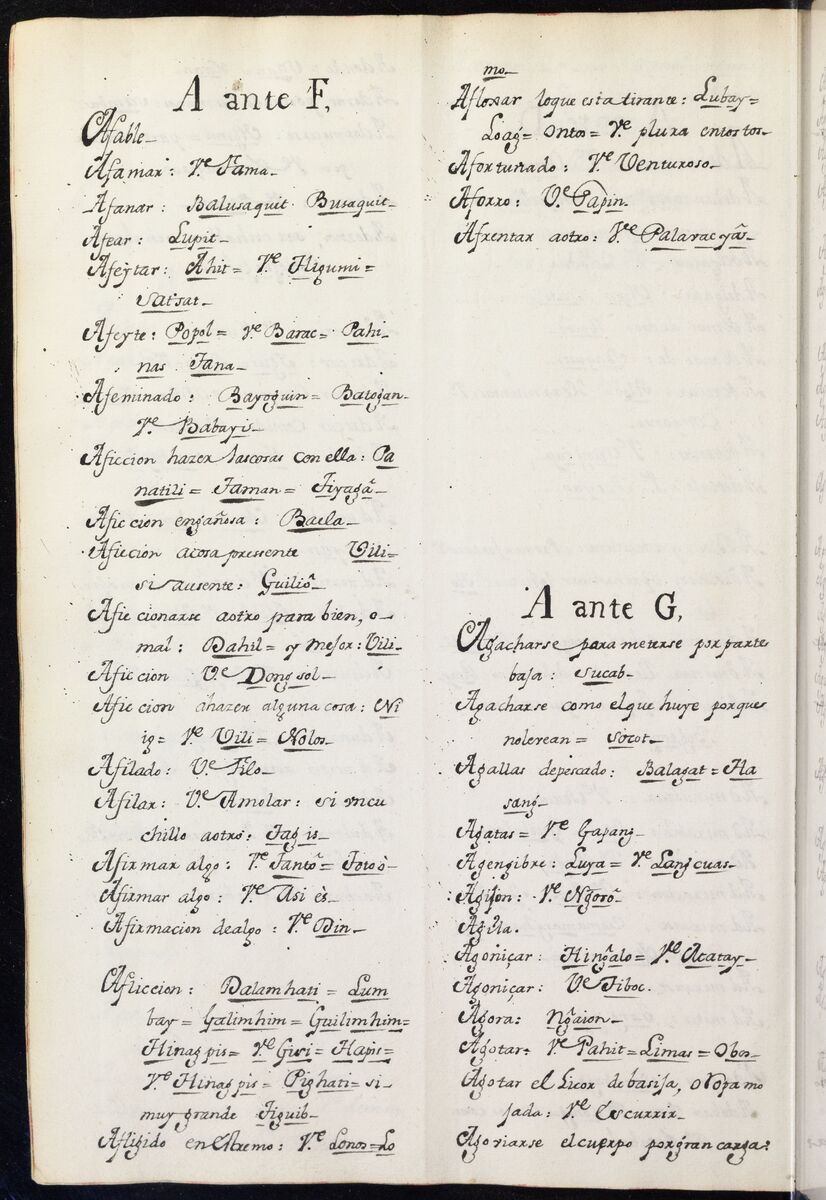 A ante F,
Afable_
Afamar: V.e Fama_
Afanar: Balusaquit Busaquit_
Afear: Lupit_
Afeytar: Ahit= V.e Higumi=
satsat_
Afeyte: Popol= V.e Barac= Pahi=
nas Tana_
Afeminado: Bayoguin= Batogan_
V.e Babayis_
Aficcion hazer lascosas con ella: Pa
natili= Taman= Tiyagã_
Aficcion engañosa: Baela_
Aficcion acosa pressente Vili=
si ausente: Guiliõ_
Aficcionarse aotro para bien, o_
mal: Dahil= y mejor: Vili_
Aficcion V.e Dongsol_
Aficcion ahazer alguna cosa: Ni
ig= V.e Uili= Nolos_
Afilado: V.e Filo_
Afilar: V.e Amolar: si vncu
chillo aotro: Tagis_
Afirmar algo: V.e Tantõ= Totoo_
Afirmar algo: V.e Asi ès_
Afirmacion dealgo: V.e Din_
Afliccion: Dalamhati= Lum
bay= Galimhim= Guilimhim=
Hinagpis= V.e Givi= Hapis=
V.e Hinagpis= Pighati= si_
muy grande Tiguib_
Afligido en estremo: V.e Lonos=Lo
mo_
Afloxar loque esta tirante: Lubay=
Loag= Ontos= V.e pluxa entostos_
Afortunado: V.e Venturoso_
Aforro: V.e Tapin.
Afrentar aotro: V.e Palaracyã_
A ante G,
Agacharse para meterse por parte
baja: sucab_
Agacharse como elque huye porques
nolevean= socot_
Agallas depescado: Balagat=Ha
sang_
Agatas= V.e Gapang_
Agengibre: Luya= V.e Langcuas_
Agijon: V.e Ngorõ_
Agila.
Agoniçar: Hingalo= V.e Acatay_
Agoniçar: V.e Tiboc.
Agora: Ngaion_
Agotar= V.e Pahit=Limas=Obos_
Agotar el Licor de basija, o Ropa mo
jada: V.e Escurrir_
Agoviarse el cuerpo porgran carga: